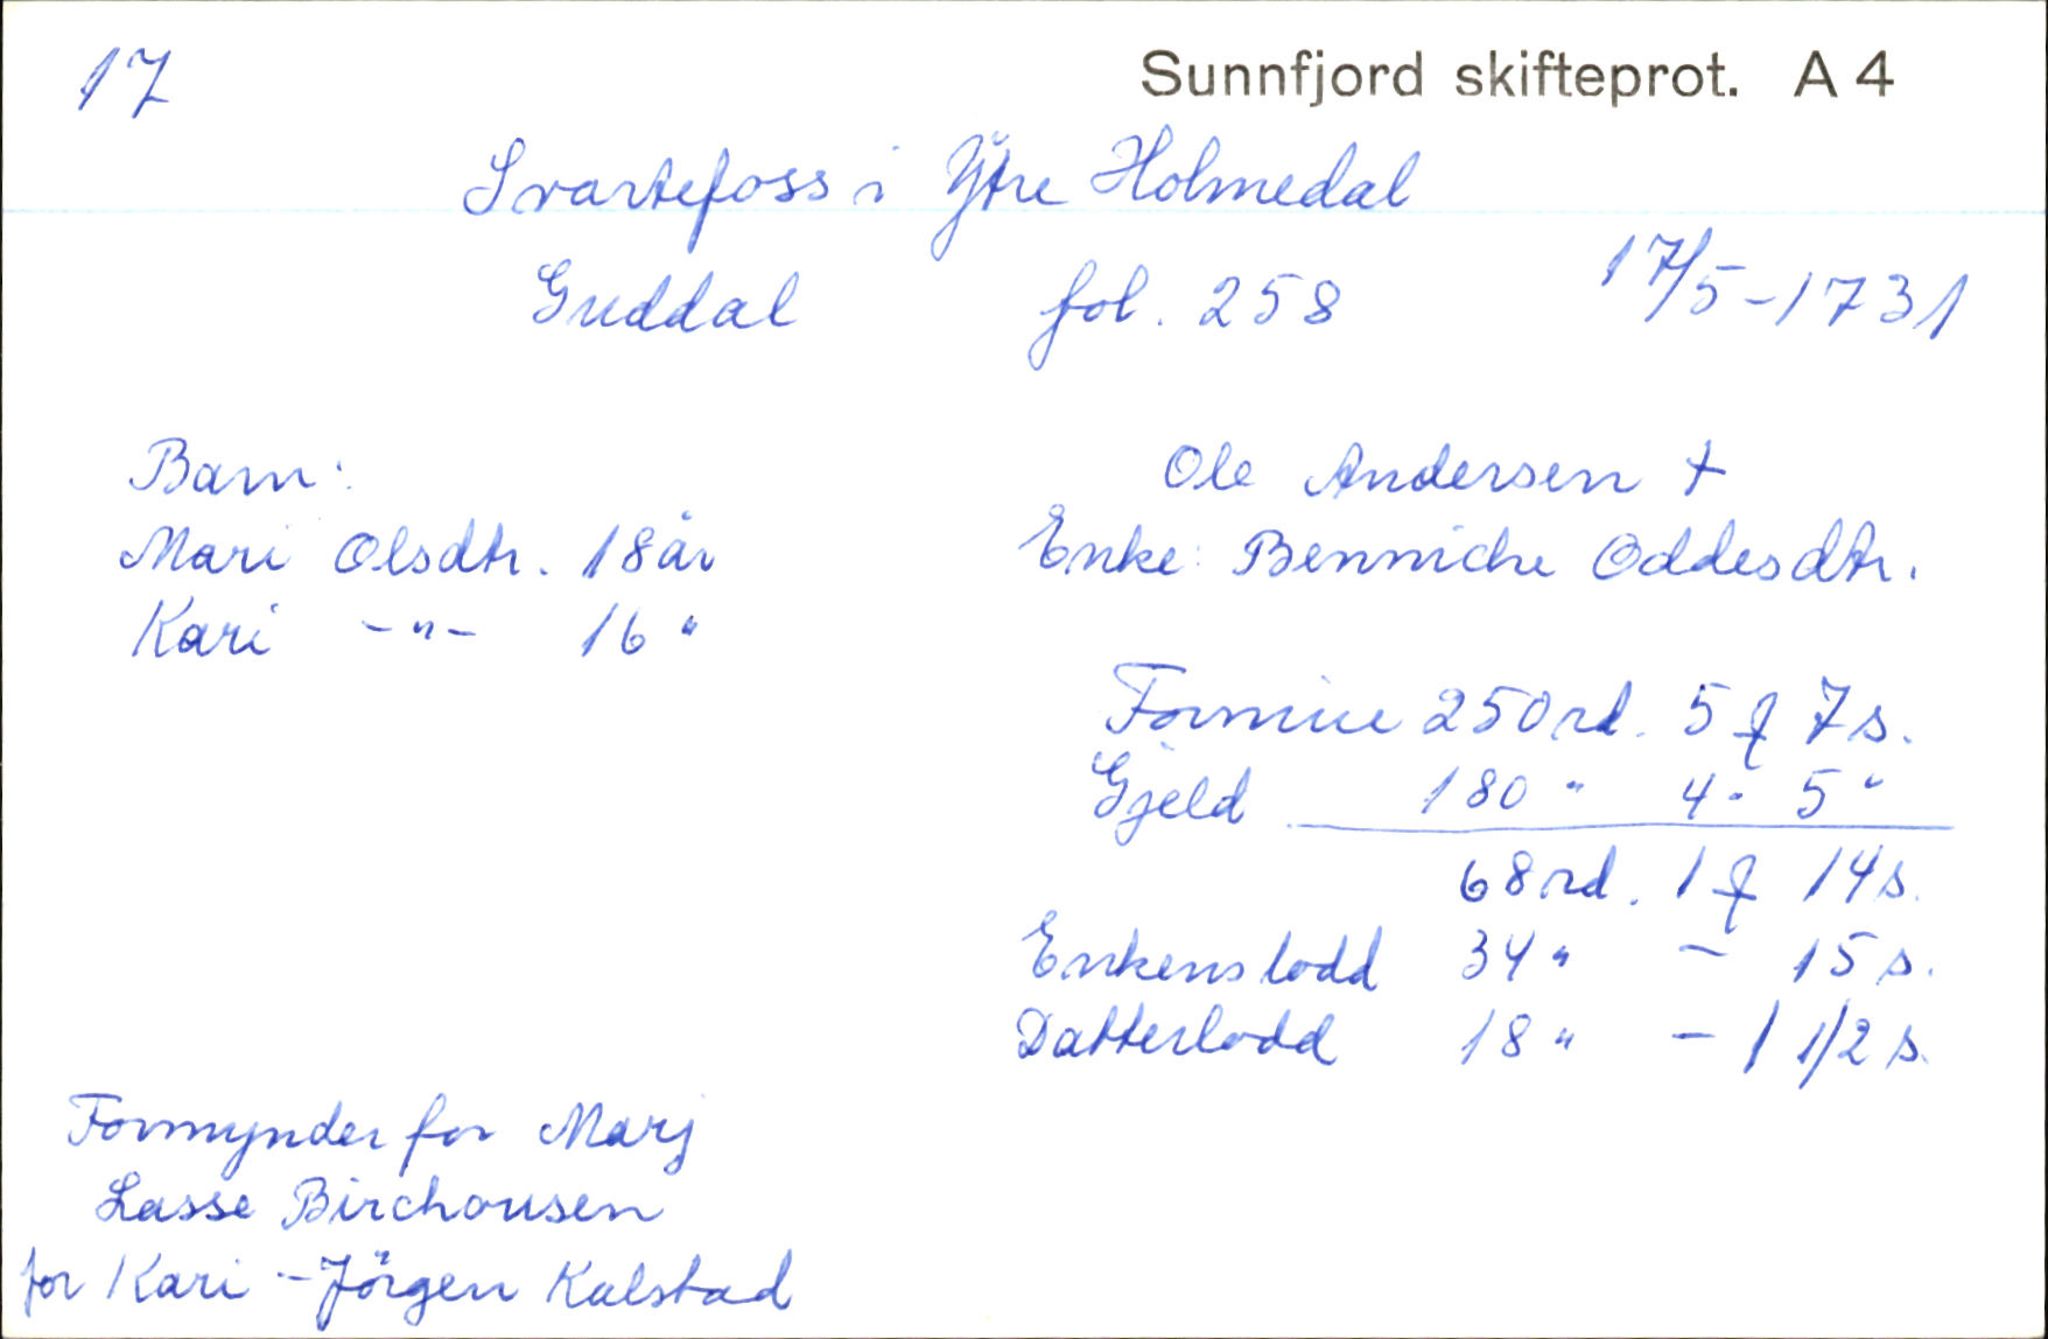 17
Sunnfjord skifteprot. A 4
Svartefoss i Ytre Holmedal
Guddal fol. 258 17/5-1731
Barn:
Mari Olsdtr. 18 år
Kari -"- 16 "
Ole Andersen +
Enke: Benniche Oddesdtr.
Formue 250 rd. 5 ƒ 7 s.
Gjeld 180 " 4 " 5 "
68 rd. 1 ƒ 14 s.
Enkens lodd 34 " - 15 s.
Datterlodd 18 " - 1 1/2 s.
Formynder for Marj
Lasse Birchousen
for Kari - Jörgen Kalstad